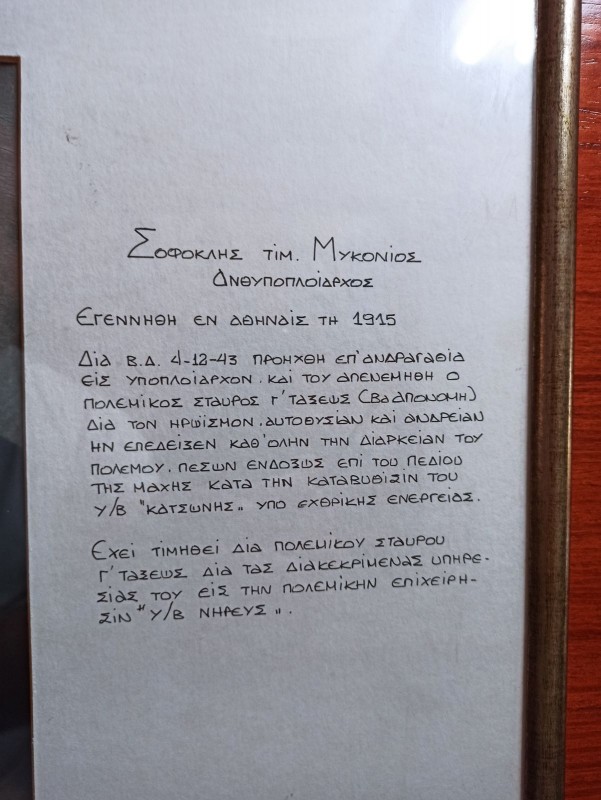 Σοφοκλης τιμ. Μυκονιος
Ανθυποπλοίαρχος
Εγεννηθη εν Αθηναίς τη 1915
Δια Β.Δ. 4-12-43 προηχθη επ' ανδραγαθία
εις υποπλοίαρχον. και του απενεμηθη ο
πολεμικος σταυρος Γ' ταξεως (Βα απονομη)
δια τον ηρωϊσμον. αυτοθυσιαν και ανδρειαν
ην επεδειξεν καθ' ολην την διαρκειαν του
πολεμου. πεσων ενδοξως επι του πεδιου
της μαχης κατα την καταβυθισιν του
Υ/Β "Κατσωνης„ υπο εχθρικης ενεργειας.
Εχει τιμηθει δια πολεμικου σταυρου
Γ' ταξεως δια τας διακεκριμενας υπηρε-
σιας του εις την πολεμικην επιχειρη-
σιν "Υ/Β Νηρευς„.